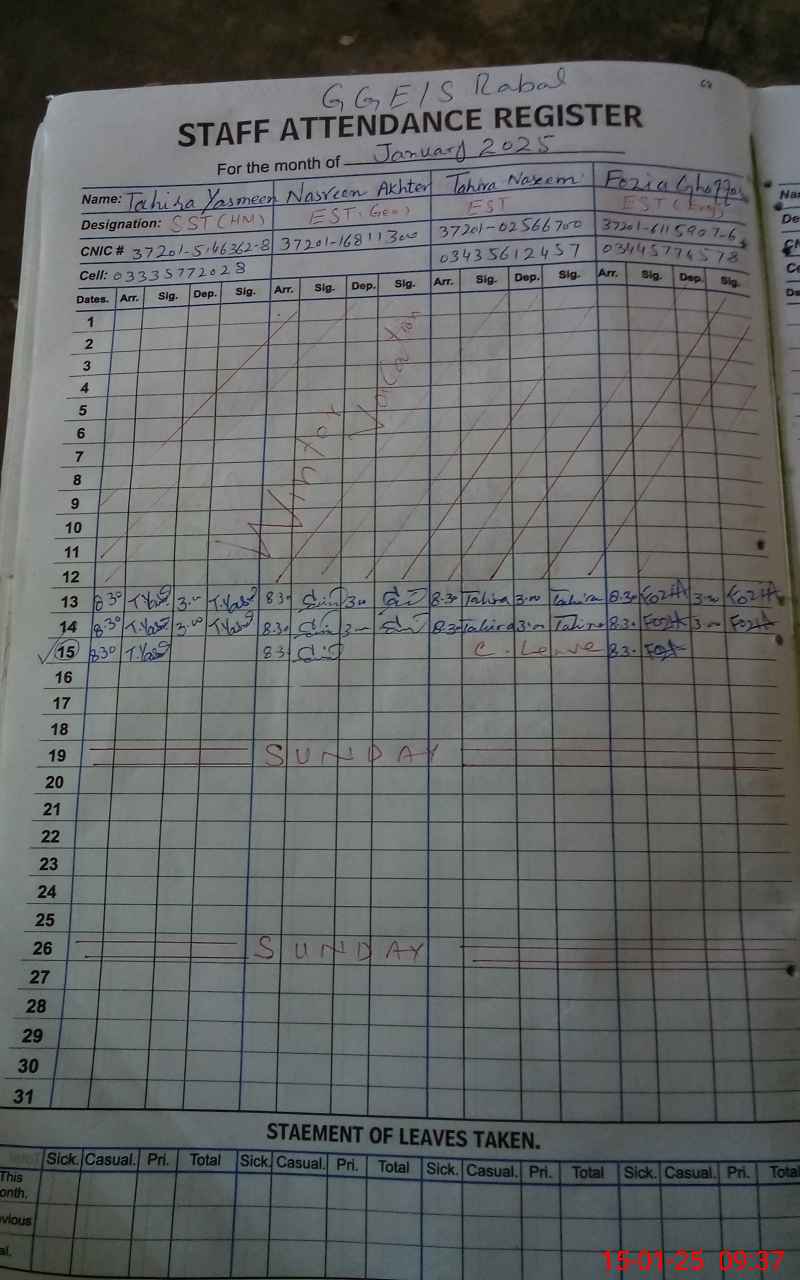 GGE/S Rabal
STAFF ATTENDANCE REGISTER
For the month of January 2025
Name: Tahira Yasmeen Nasreen Akhter Tahira Naseem Fozia
Designation: SST (HM) EST (Gen) EST EST
CNIC # 37201-5146362-8 37201-1681130 37201-0256670 0 37201-6115907-6
Cell: 03335772028 03435612457 03445776578
Dates. Arr. Sig. Dep. Sig. Arr. Sig. Dep. Sig. Arr. Sig. Dep. Sig. Arr. Sig. Dep. Sig.
1
2
3
4
5
6
7
8
9
10
11
12
Winter Vacation
13 8:30 T.Yas 3:00 T.Yas 8:30 3:00 8:30 Tahira 3:00 Tahira 8:30 Fozia 3:00 Fozia
14 8:30 T.Yas 3:00 T.Yas 8:30 3:00 8:30 Tahira 3:00 Tahira 8:30 Fozia 3:00 Fozia
15 8:30 T.Yas 8:30 C. Leave 8:30 Fozia
16
17
18
19 SUNDAY
20
21
22
23
24
25
26 SUNDAY
27
28
29
30
31
STAEMENT OF LEAVES TAKEN.
Sick. Casual. Pri. Total Sick. Casual. Pri. Total Sick. Casual. Pri. Total Sick. Casual. Pri. Total
This
onth.
vious
al.
15-01-25 09:37